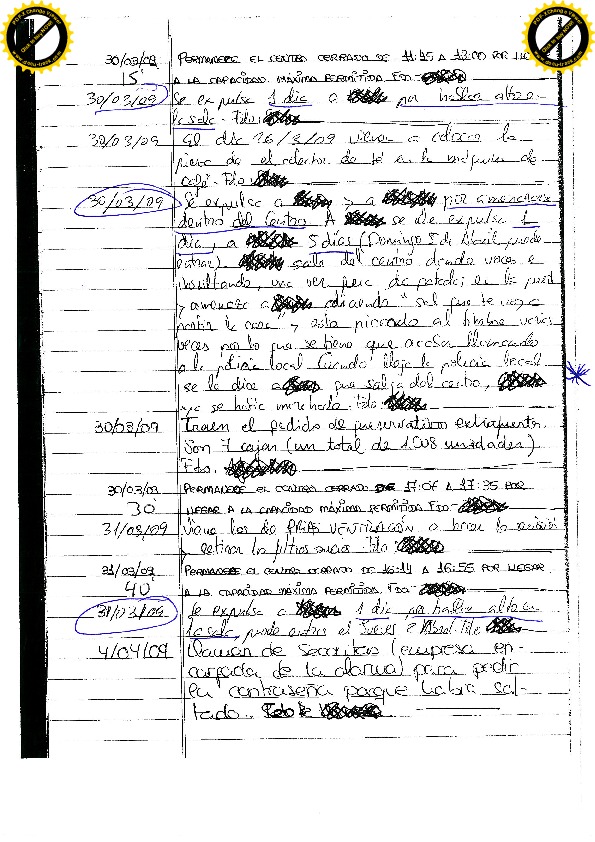 30/03/09 PERMANECE EL CENTRO CERRADO DE 11:45 A 12:00 POR
15' A LA CAPACIDAD MÁXIMA PERMITIDA. FDO.
30/03/09 Se expulsa 1 día a por hablar alto en
la sala. Fdo:
30/03/09 El día 16/3/09 vienen a colocar la
pieza de el colector de té en la máquina de
café. Fdo
30/03/09 Se expulsa a y a por amenazarse
dentro del Centro. A se le expulsa 1
día, a 5 días (Domingo 5 de Abril puede
entrar). salta del centro dando voces e
insultando, una vez fuera da patadas en la
y amenaza a diciendo "sal que te voy a
partir la cara" y esto picando al timbre varias
veces por lo que se tiene que acabar llamando
a la policía local. Cuando llega la policía local
se le dice a que salga del centro,
ya se había marchado. Fdo.
30/03/09 Traen el pedido de preservativos extrapuntos.
Son 7 cajas (un total de 1.008 unidades)
Fdo.
30/03/09 PERMANECE EL CENTRO CERRADO DE 17:05 A 17:35 POR
30' LLEGAR A LA CAPACIDAD MÁXIMA PERMITIDA. FDO:
31/03/09 los de VENTILACIÓN a hacer la revisión
y retirar los filtros sucios. Fdo:
31/03/09 PERMANECE EL CENTRO CERRADO DE 16:14 A 16:55 POR LLEGAR
40' A LA CAPACIDAD MÁXIMA PERMITIDA. FDO:
31/03/09 Se expulsa a 1 día por hablar alto en
la sala, puede entrar el Jueves 2 Abril. Fdo
4/04/09 Llaman de Securitas (empresa en-
cargada de la alarma) para pedir
la contraseña porque había sal-
tado. Fdo